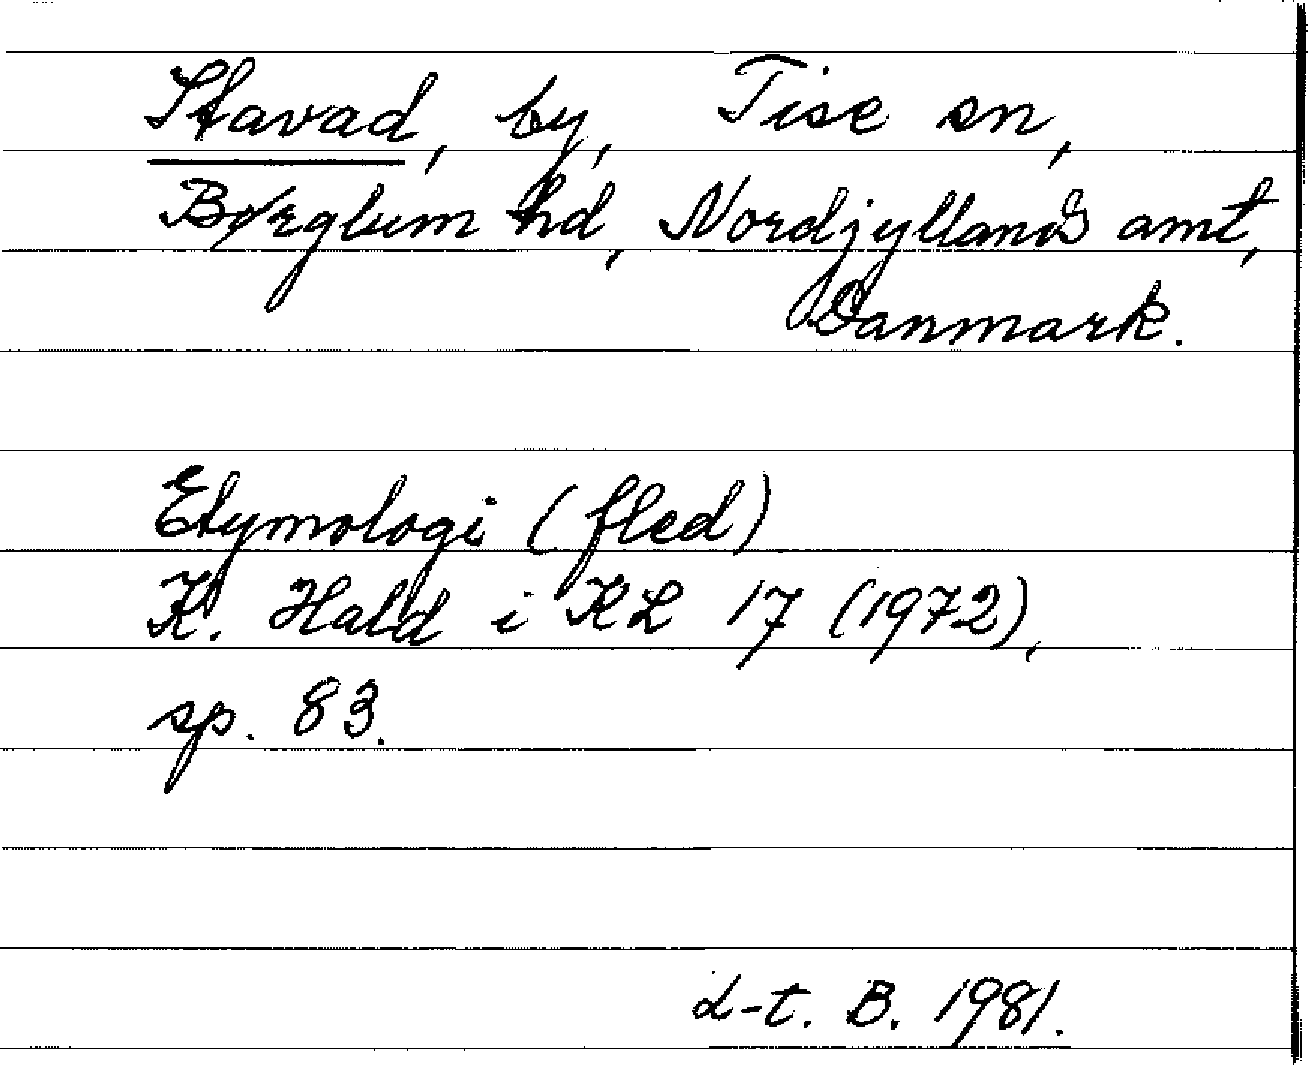 Stavad, by, Tise sn,
Børglum hd, Nordjyllands amt,
Danmark.
Etymologi (fled)
K. Hald i KL 17 (1972),
sp. 83.
L-t. B. 1981.